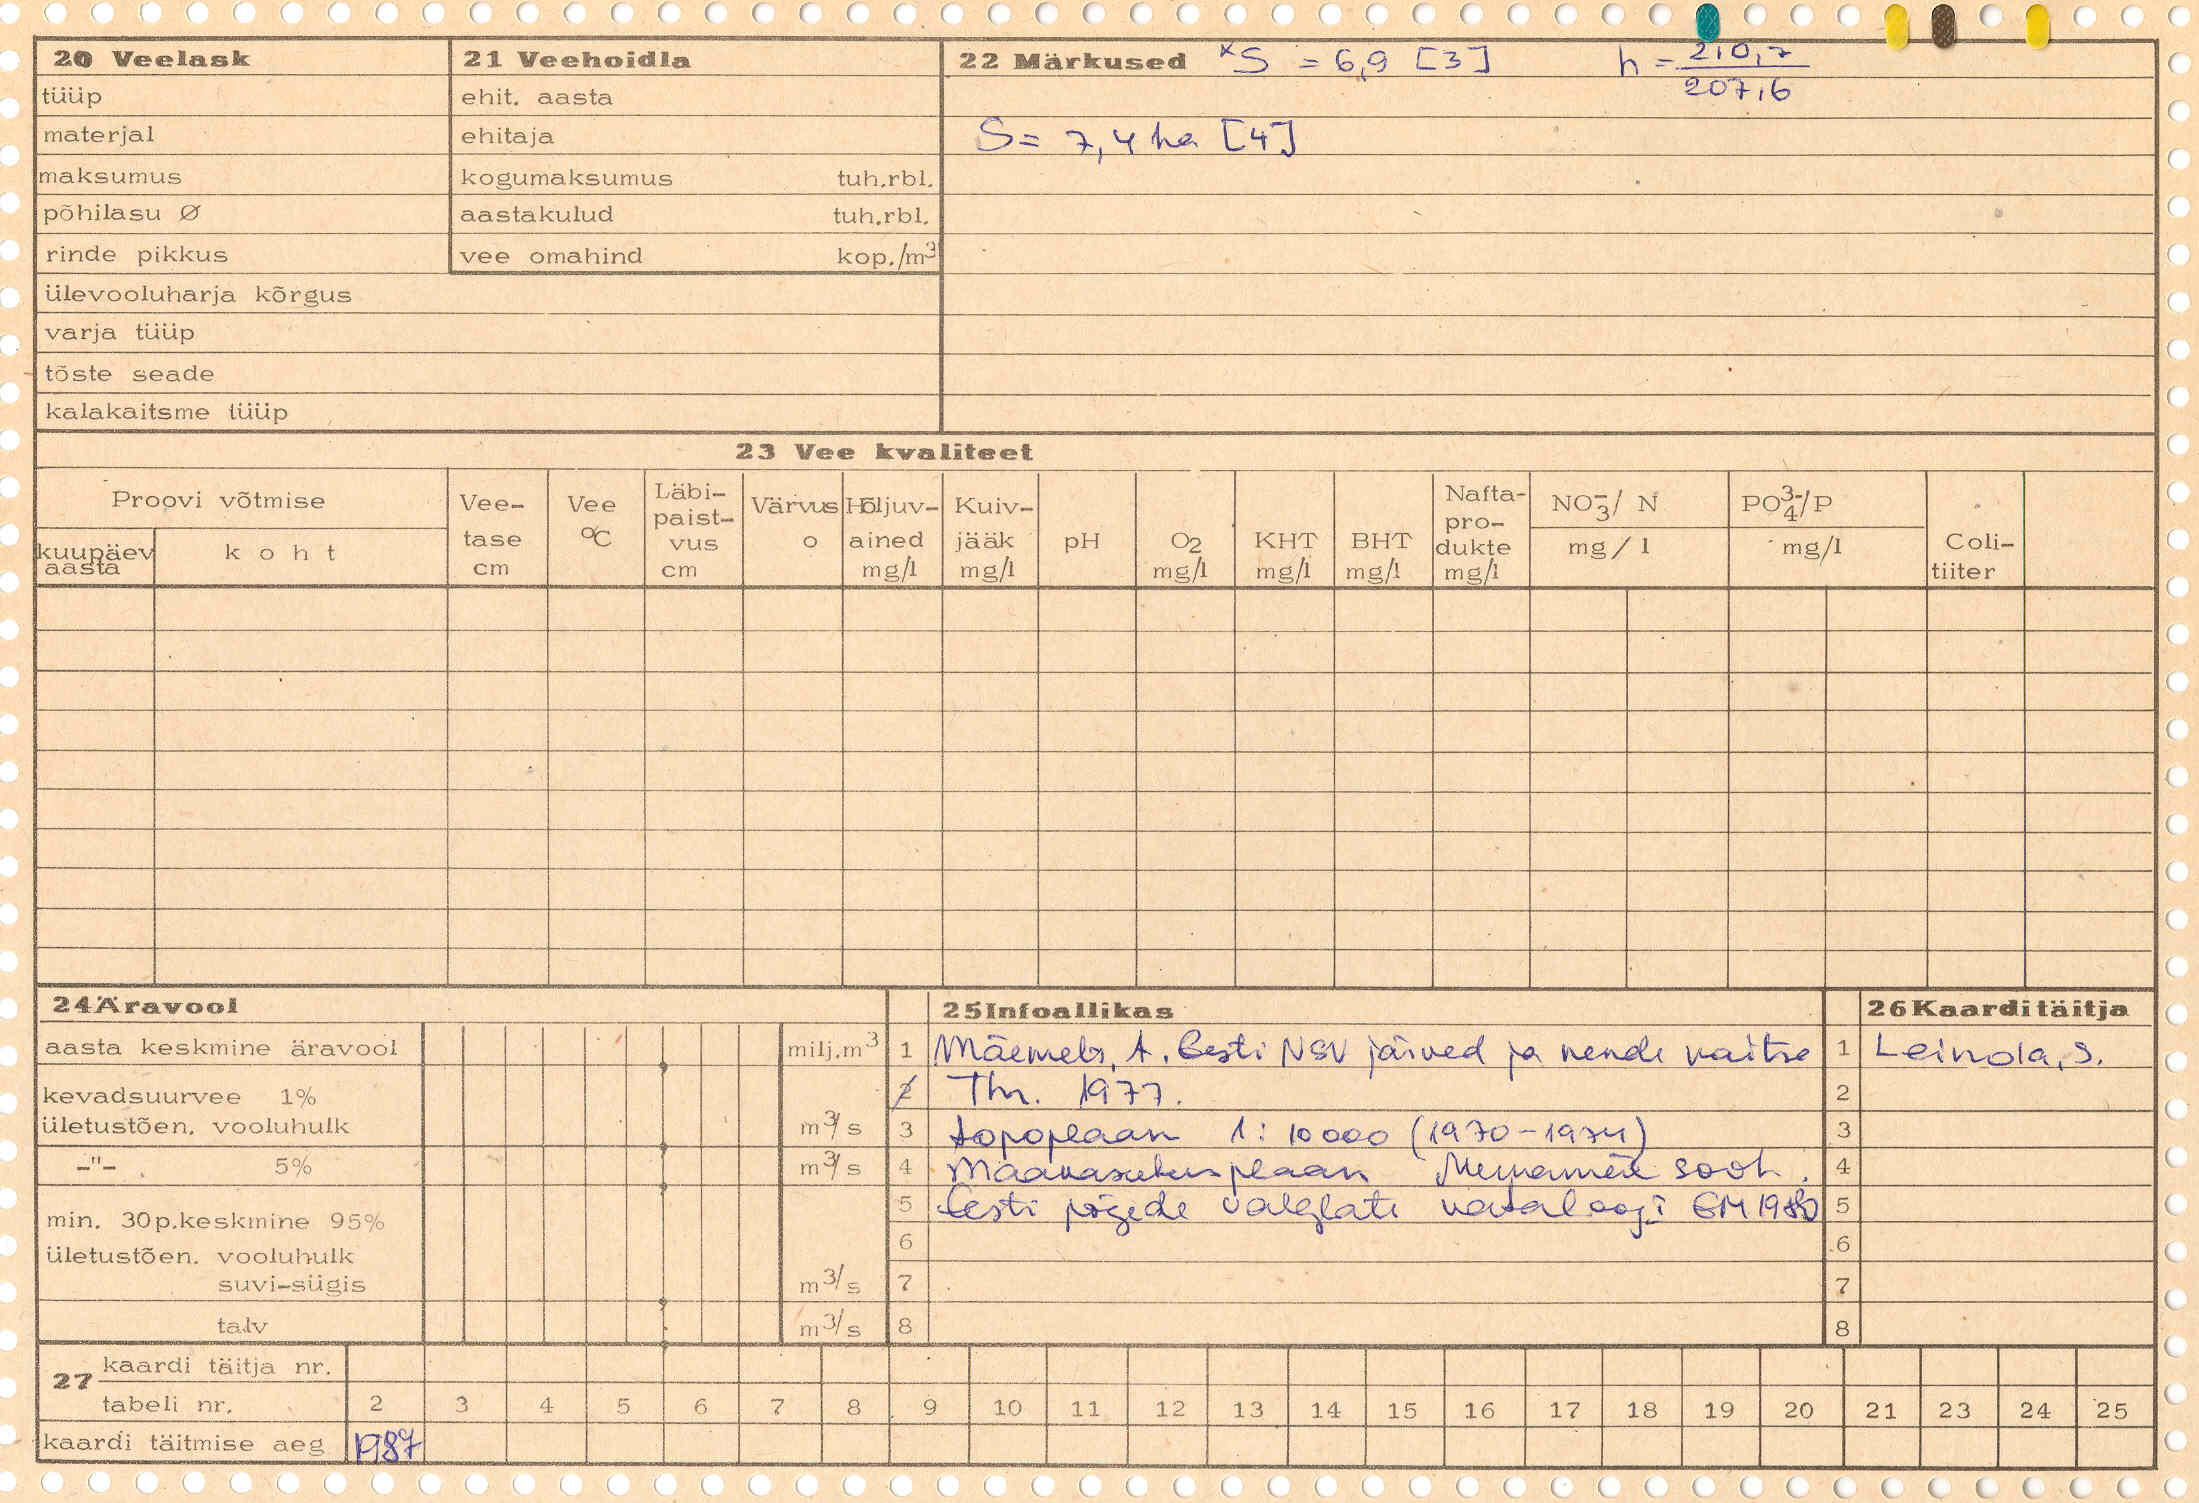 20 Veelask
tüüp
materjal
maksumus
põhilasu Ø
rinde pikkus
ülevooluharja kõrgus
varja tüüp
tõste seade
kalakaitsme tüüp
21 Veehoidla
ehit. aasta
ehitaja
kogumaksumus tuh.rbl.
aastakulud tuh.rbl.
vee omahind kop./m³
22 Märkused xS = 6,9 [3] h = 210,7
207,6
S = 7,4 ha [4]
23 Vee kvaliteet
Proovi võtmise
kuupäev
aasta
koht
Vee-
tase
cm
Vee
°C
Läbi-
paist-
vus
cm
Värvus
o
Hõljuv-
ained
mg/l
Kuiv-
jääk
mg/l
pH
O2
mg/l
KHT
mg/l
BHT
mg/l
Nafta-
pro-
dukte
mg/l
NO₃⁻/ N
mg/l
PO₄³⁻/P
mg/l
Coli-
tiiter
24 Äravool
aasta keskmine äravool milj.m³
kevadsuurvee 1%
ületustõen. vooluhulk m³/s
-"- 5% m³/s
min. 30p.keskmine 95%
ületustõen. vooluhulk
suvi-sügis m³/s
talv m³/s
25 Infoallikas
1 Mäemets, A. Eesti NSV järved ja nende kaitse
2 Tln. 1977.
3 topoplaan 1:10 000 (1970-1974)
4 Maakasutusplaan sooh.
5 Eesti jõgede valglate kataloogi EM 1980
6
7
8
26 Kaarditäitja
1 Leinola, S.
2
3
4
5
6
7
8
27 kaardi täitja nr.
tabeli nr. 2 3 4 5 6 7 8 9 10 11 12 13 14 15 16 17 18 19 20 21 23 24 25
kaardi täitmise aeg 1987